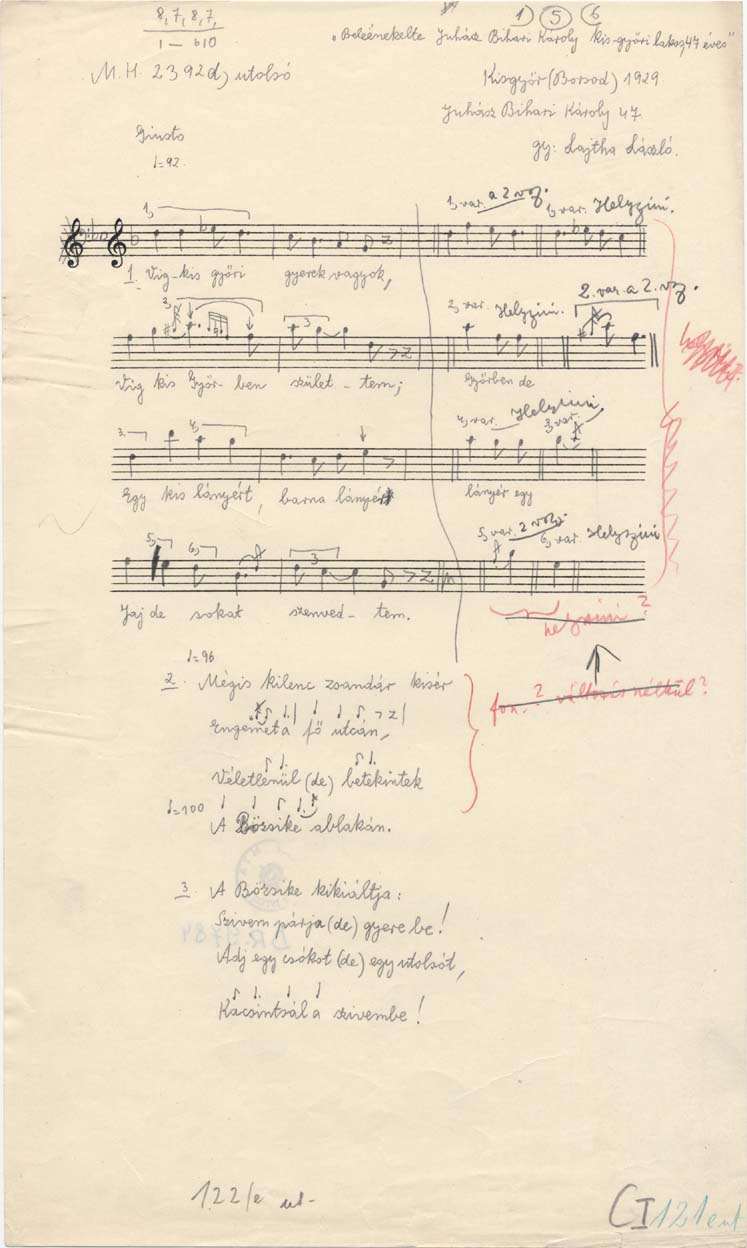 8, 7, 8, 7,
1 — b10
1) 5 6
"Beleénekelte Juhász Bihari Károly kis-győri lakos, 47 éves"
M.H. 2392d, utolsó
Kisgyőr (Borsod) 1929
Juhász Bihari Károly 47
gy: Lajtha László.
Giusto
♩=92
1, 1, var. a 2 vsz. 1, var. Helyszini.
1. Vig-kis győri gyerek vagyok,
3, 2, var. Helyszini. 2. var. a 2. vsz.
Vig kis Győr-ben szület-tem; Győrben de
3. 4, 4, var. Helyszini 3, var.
Egy kis lányért, barna lányért lányér egy
5, 6, 3 5, var. 2 vsz. 6, var. Helyszini
Jaj de sokat szenved-tem.
helyszini?
♩=96
2. Mégis kilenc zsandár kisér
fon. ? változás nélkül?
Engemet a fő utcán,
Véletlenül (de) betekintek
♩=100
A Bözsike ablakán.
3. A Bözsike kikiáltja:
Szivem párja (de) gyere be!
Adj egy csókot (de) egy utolsót,
Kacsintsál a szivembe!
122/e ut-
CI 121 ent